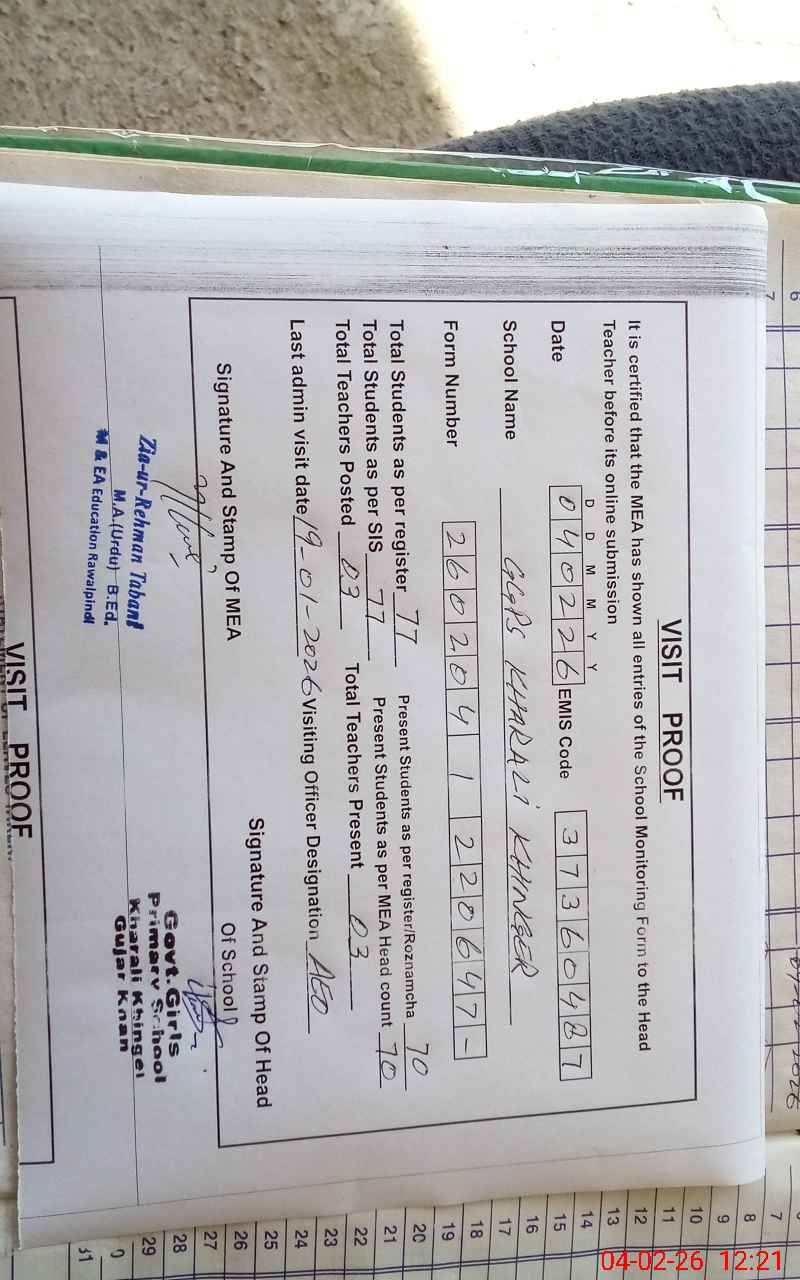 VISIT PROOF
It is certified that the MEA has shown all entries of the School Monitoring Form to the Head
Teacher before its online submission
D D M M Y Y
Date 040226 EMIS Code 37360487
School Name GGPS KHARALI KHINGER
Form Number 2602041220647-
Total Students as per register 77 Present Students as per register/Roznamcha 70
Total Students as per SIS 77 Present Students as per MEA Head count 70
Total Teachers Posted 03 Total Teachers Present 03
Last admin visit date 19-01-2026 Visiting Officer Designation AEO
Signature And Stamp Of MEA
Signature And Stamp Of Head
Of School
Zia-ur-Rehman Tabani
M.A.(Urdu) B.Ed.
M & EA Education Rawalpindi
Govt. Girls
Primary School
Kharali Khingel
Gujar Khan
VISIT PROOF
6
7
7
8
9
10
11
12
13
14
15
16
17
18
19
20
21
22
23
24
25
26
27
28
29
0
31
04-02-26 12:21